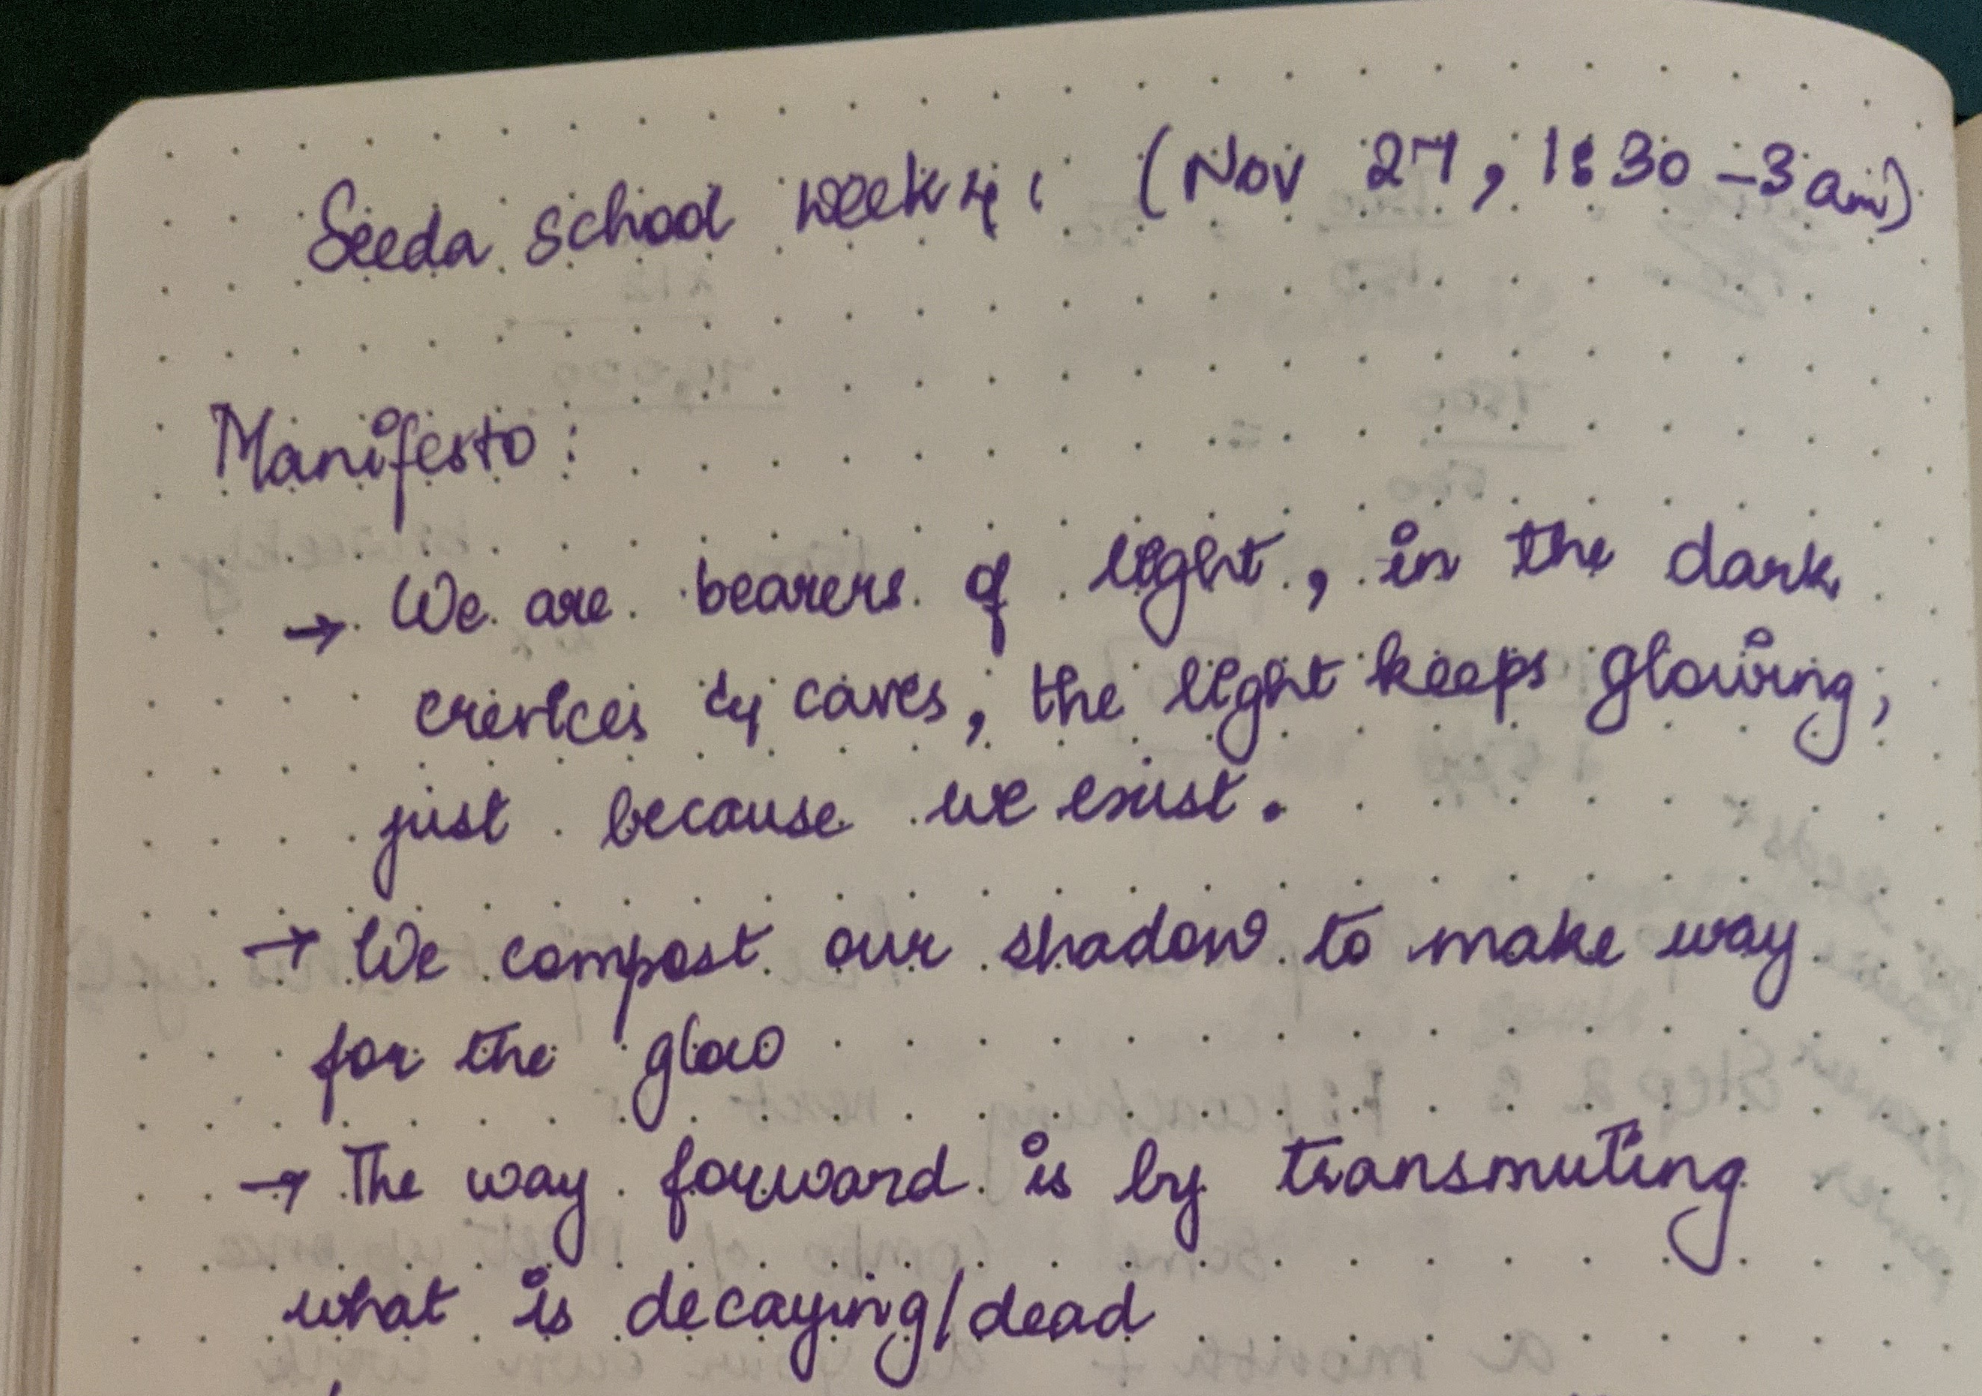 Seeda school week 4: (Nov 27, 1:30 - 3 am)
Manifesto:
→ We are bearers of light, in the dark
crevices & caves, the light keeps glowing,
just because we exist.
→ We compost our shadow to make way
for the glow
→ The way forward is by transmuting
what is decaying/dead